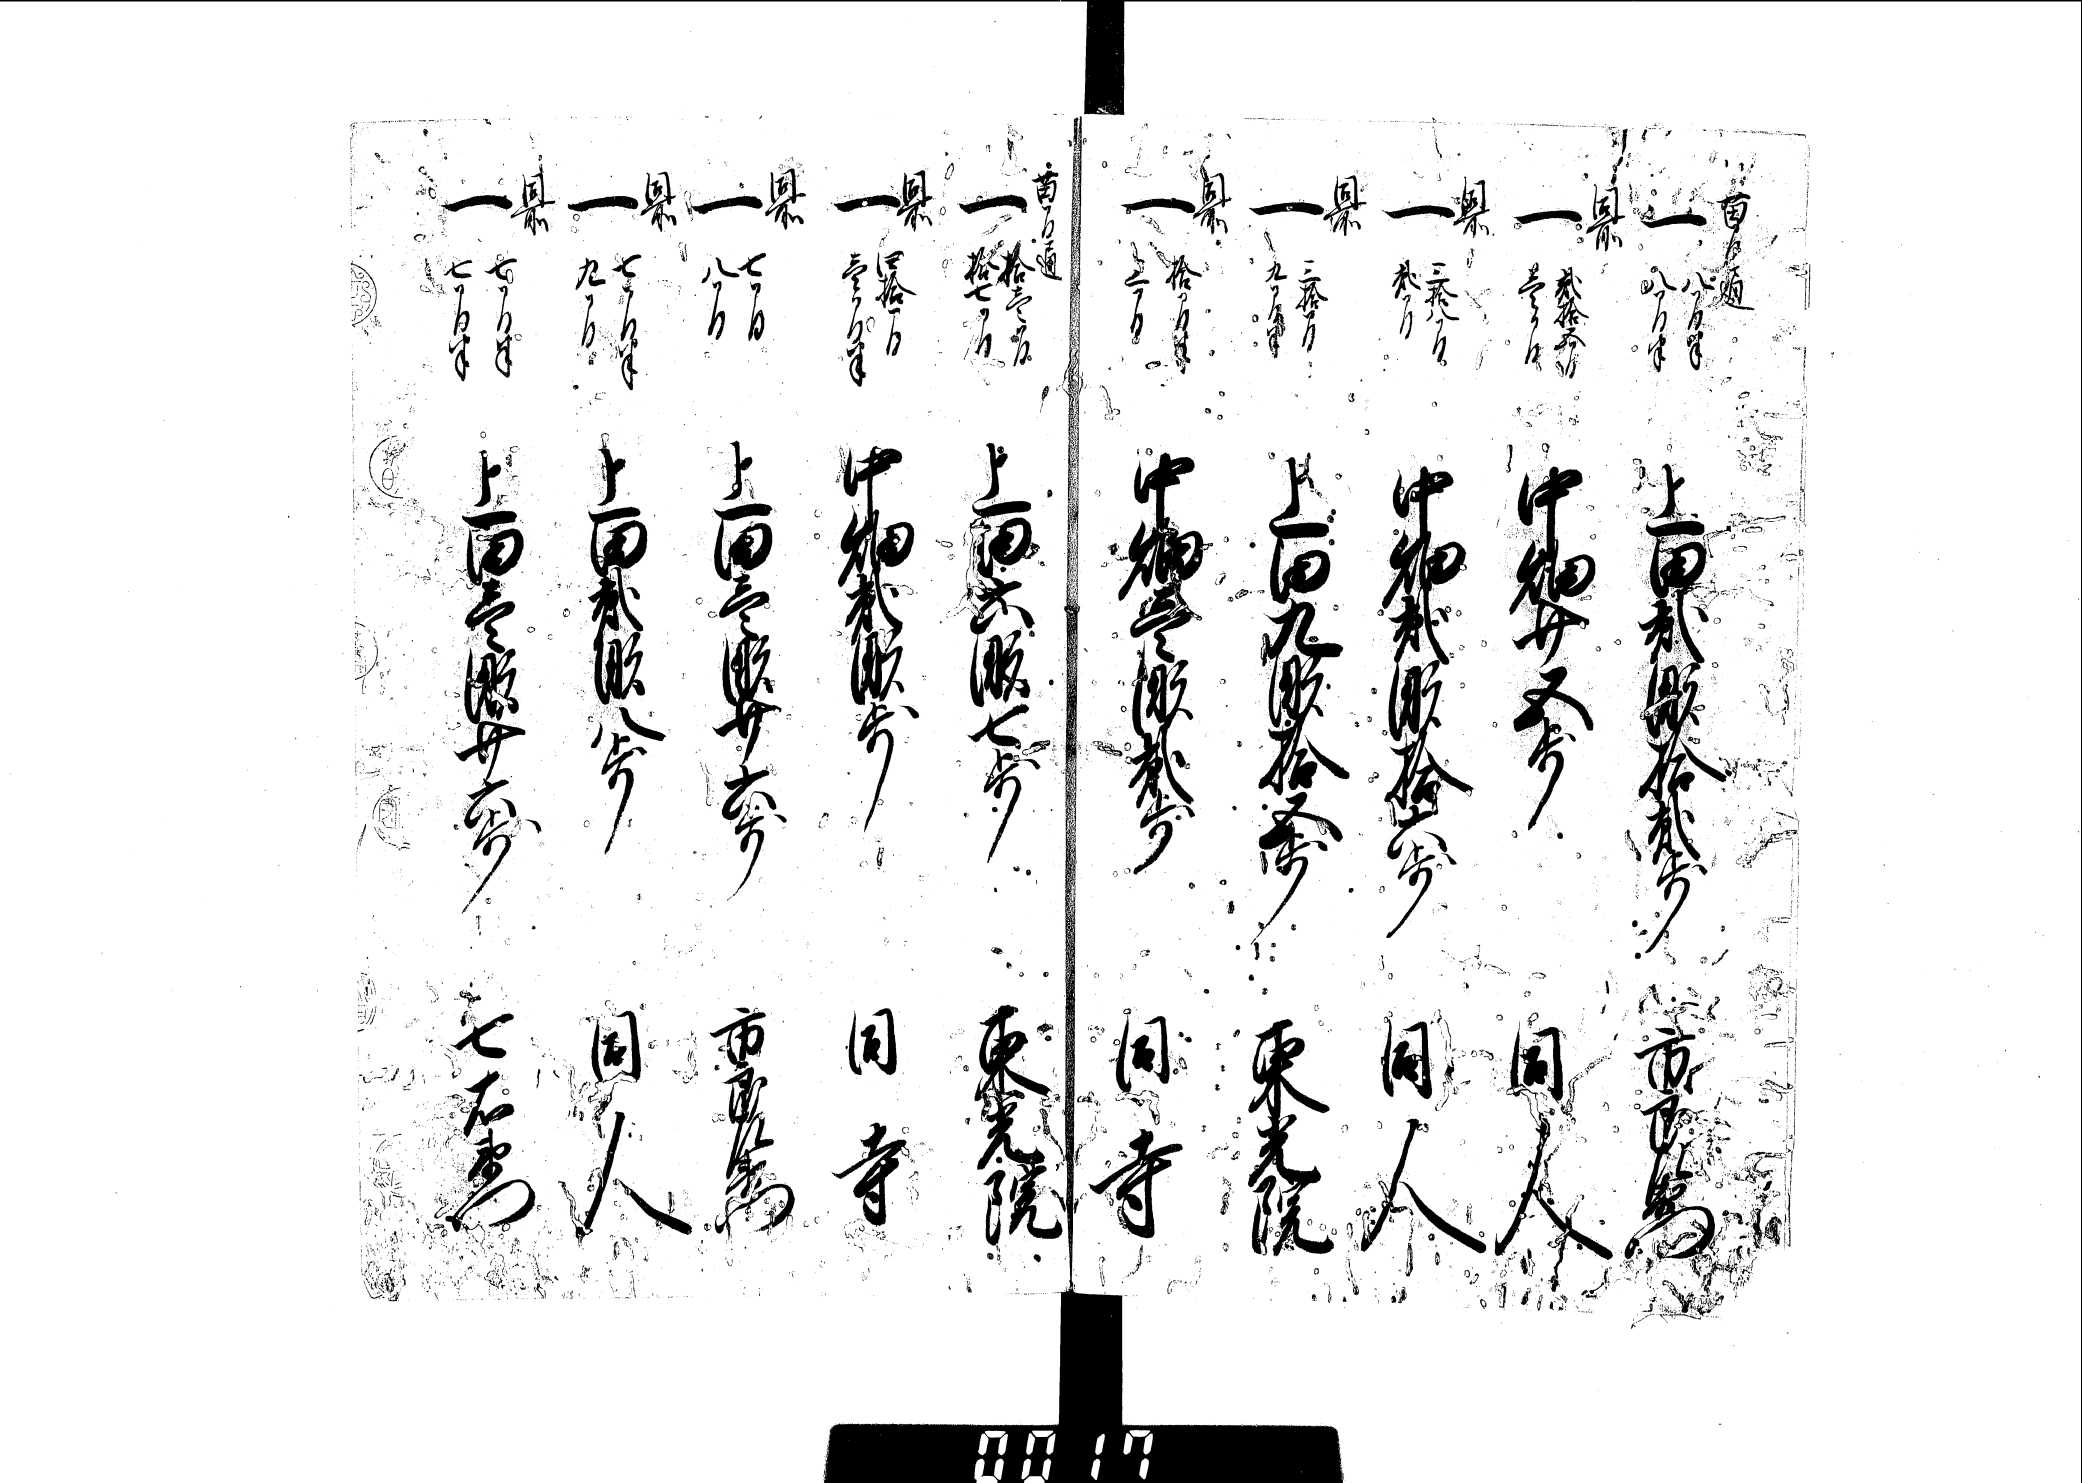 一 八間半 八間半 上田弐畝拾弐歩 市郎右衛門
同所
一 弐拾五間 壱間 中畑廿五歩 同人
同所
一 三拾八間 弐間 中畑弐畝拾六歩 同人
同所
一 三拾間 九間半 上田九畝拾五歩 東光院
同所
一 拾間半 三間 中畑壱畝弐歩 同寺
一 拾壱間 拾七間 上田六畝七歩 東光院
同所
一 四拾間 壱間半 中畑弐畝歩 同寺
同所
一 七間 八間 上田壱畝廿六歩 市郎右衛門
同所
一 七間半 九間 上田弐畝八歩 同人
同所
一 七間半 七間半 上田壱畝廿六歩 七右衛門
0017